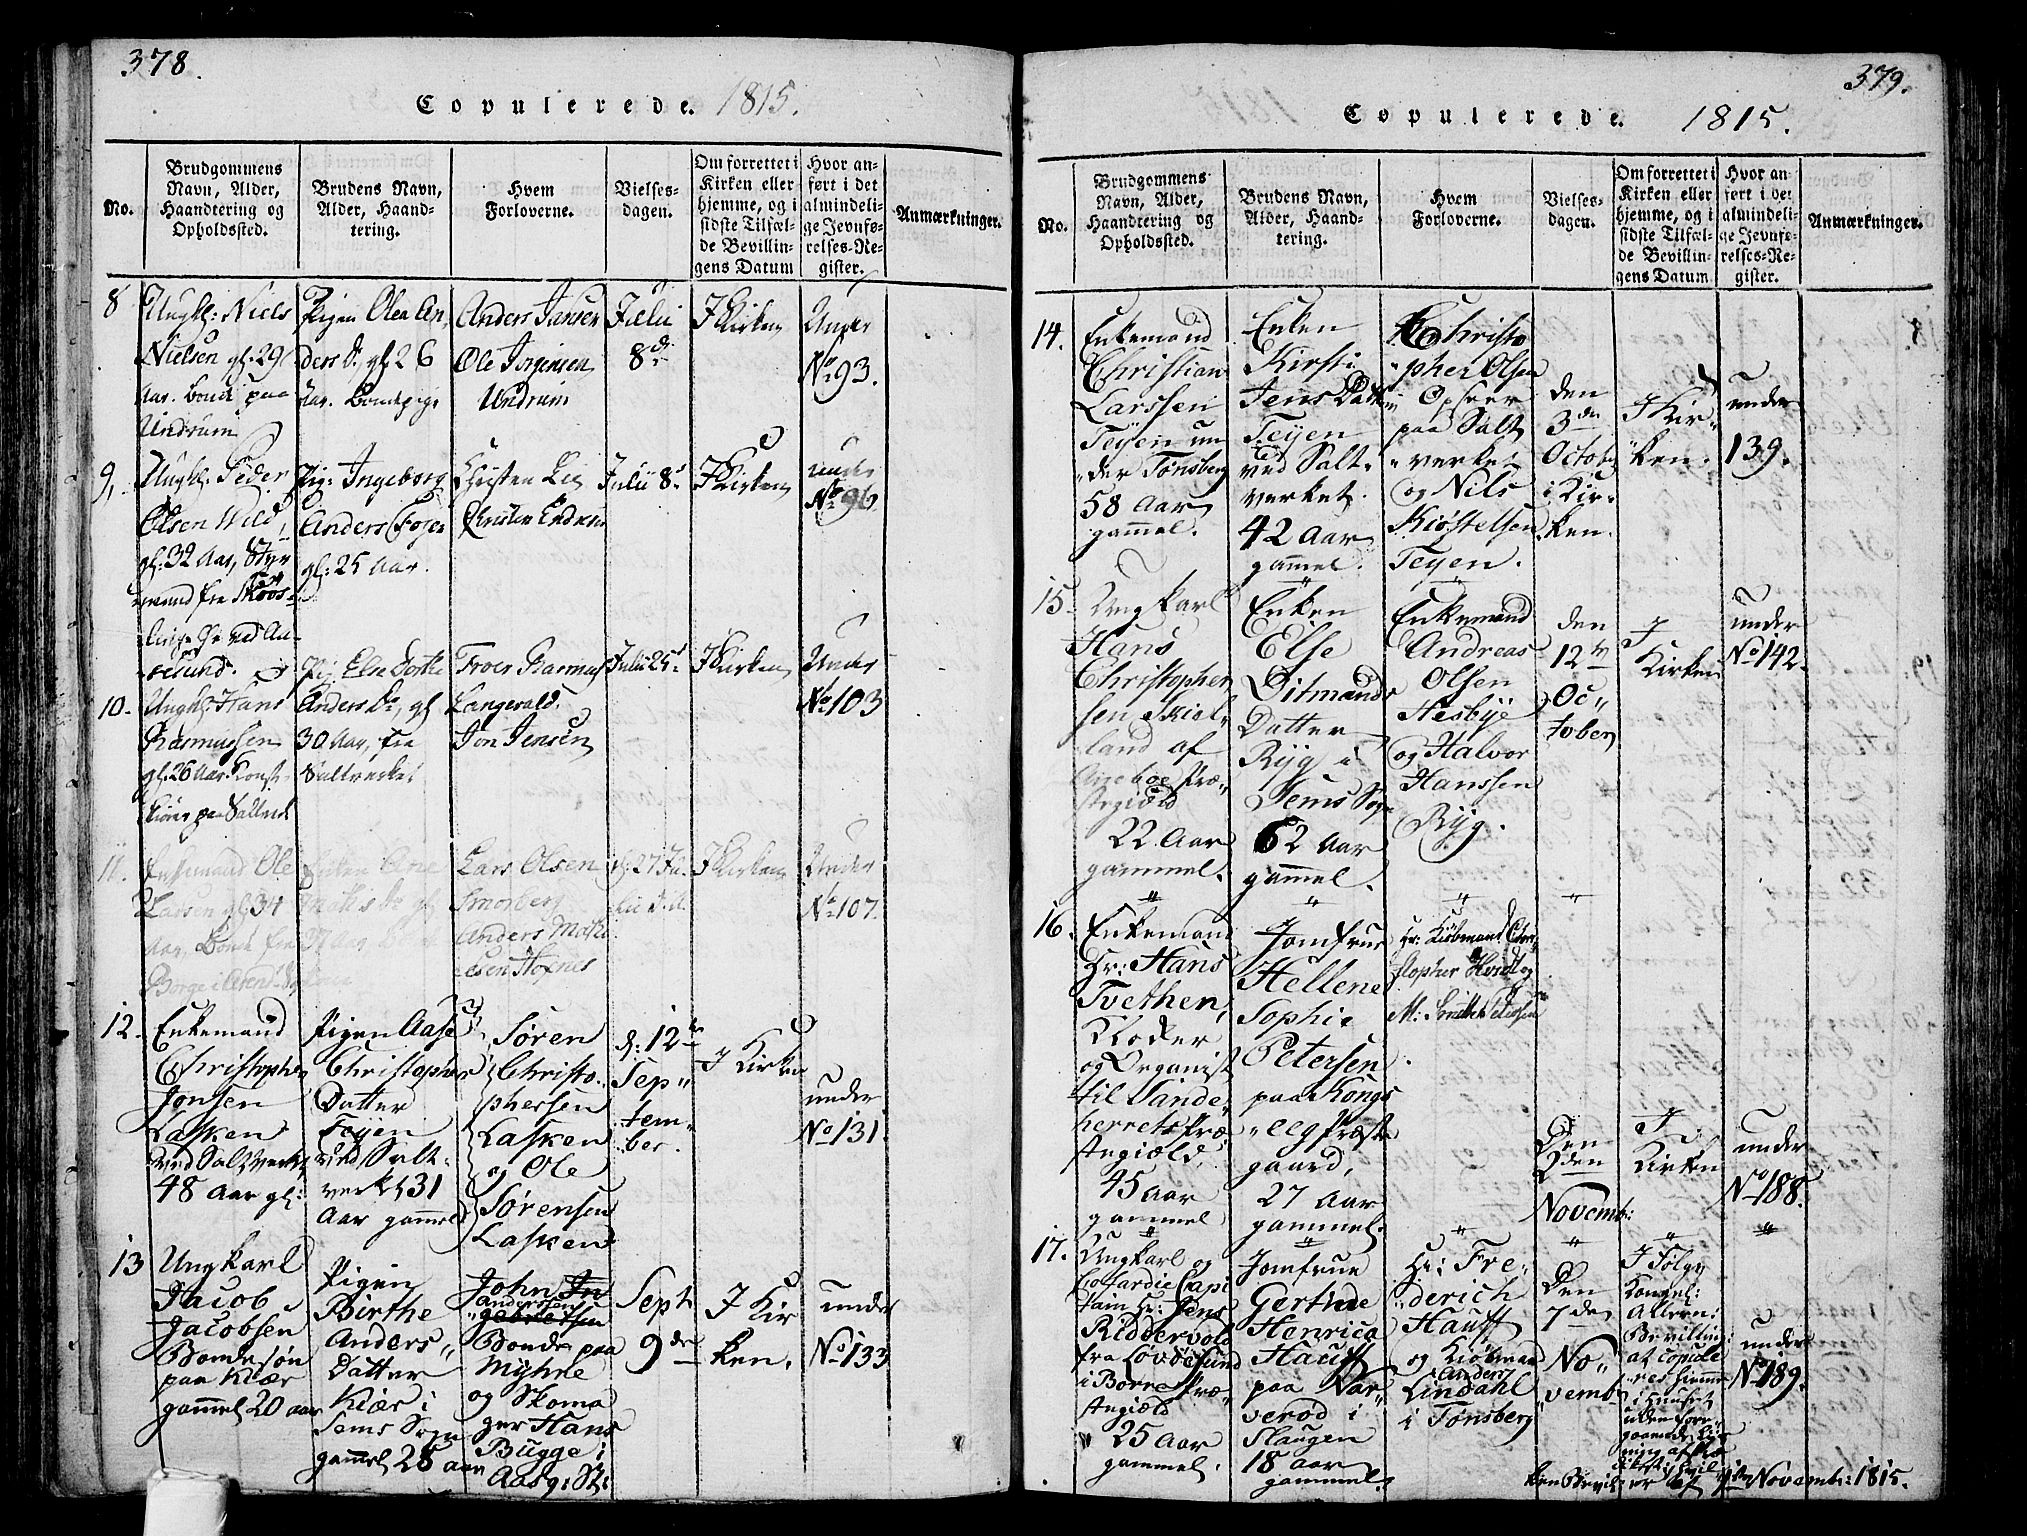 378.
Copulerede. 1815.
No.
Brudgommens
Navn, Alder,
Haandtering og
Opholdssted.
Brudens Navn,
Alder, Haand-
tering.
Hvem
Forloverne.
Vielses-
dagen.
Om forrettet i
Kirken eller
hjemme, og i
sidste Tilfæl-
de Bevillin-
gens Datum
Hvor an-
ført i det
almindeli-
ge Jevnfø-
relses-Re-
gister.
Anmærkninger.
8
Ungk: Niels
Nielsen gl: 29
Aar. Bonde paa
Undrum
Pigen Olea An
ders D. gl 26
Aar. Bondepige
Anders Jansen
Ole Jorgensen
Undrum
Julii
8d
I Kirken
Under
No 93.
9,
Ungk: Peder
Olsen Wild,
gl: 32 Aar, Styr
mand fra
Pig: Ingeborg
Anders Foyen
gl: 25 Aar.
Christen Lie
Julii 8d
I Kirken
under
No 96
10.
Ungk: Hans
Rasmussen
gl: 26 Aar.
Pig. Else Dorthe
Anders D, gl
30 Aar, fra
Saltverket
Troer Rasmus
Langevald.
Jon Jensen
Julii 25d
I Kirken
Under
No 103
11.
Enkemand Ole
Larsen gl 34
Aar, Bonde fra
Enken Ane
Lars Olsen
Smorberg
Anders
27 Ju
lii
I Kirken
Under
No 107.
12.
Enkemand
Christopher
Jonsen
Lasken
ved Saltverket
48 Aar gl:
Pigen Aase
Christopher
Datter
Teyen
ved Salt-
verket 31
Aar gammel
Sören
Christo-
phersen
Lasken
og Ole
Sörensen
Lasken
d: 12te
Sep"
tem-
ber.
I Kirken
under
No 131.
13
Ungkarl
Jacob
Jacobsen
Bondesön
paa Kiær
gammel 20 aar
Pigen
Birthe
Anders"
Datter
Kiær i
Sems Sogn
gammel 28 aar
John
Anderssen
Bonde paa
Myhre
og Skoma
ger Hans
Bugge i
Aasg: St:
Septb
9de
I Kir
ken.
under
No 133
379.
Copulerede. 1815.
No.
Brudgommens
Navn, Alder,
Haandtering og
Opholdssted.
Brudens Navn,
Alder, Haand-
tering.
Hvem
Forloverne.
Vielses-
dagen.
Om forrettet i
Kirken eller
hjemme, og i
sidste Tilfæl-
de Bevillin-
gens Datum.
Hvor an
ført i det
almindeli-
ge Jevnfø-
relses-Re-
gister.
Anmærkninger.
14.
Enkemand
Christian
Larssen
Teÿen un
"der Tønsberg
58 Aar
gammel.
Enken
Kirsti
Jens Datter
Teÿen
ved Salt-
verket.
42 Aar
gammel.
Christo
"pher Olsen
Opseer
paa Salt
"verket
og Nils
Kiøstelsen
Teyen.
den
3die
October
i Kir-
ken.
I Kir-
ken.
under
139.
15.
Ungkarl
Hans
Christopher
sen Skiel
land af
Præ-
stegiæld
22 Aar
gammel.
Enken
Else
Ditmands
Datter
Ryg i
Sems Sogn
62 Aar
gammel.
Enkemand
Andreas
Olsen
Hesbye
og Halvor
Hanssen
Ryg.
den
12te
Oc"
tober
I
Kirken
under
No 142.
16.
Enkemand
Hr: Hans
Tvethen,
Kloker
og Organist
til Sande-
herrets Præ
stegiæld,
45 aar
gammel
Jomfrue
Hellene
Sophie
Petersen
paa Kongs
"eeg Præste
gaard,
27 Aar
gammel.
Hr: Kiöbmand Chri
stopher Hvidt og
M:
Den
2den
Novemb:
I
Kirken
under
No 188.
17.
Ungkarl og
Cofardie Capi
tain Hr: Jens
Riddervold
fra Løvøesund
i Borre Præ
stegiæld
25 Aar
gammel.
Jomfrue
Gerthrue
Henrica
Hauff
paa Var
verød i
Slaugen
18 aar
gammel.
Hr: Fre-
"derich
Hauff
og Kiöbmand
Anders
Lindahl
i Tønsberg
Den
7de
No"
vemb:
I Følge
Kongel:
Allern:
Bevilling
at copule
res hiemme
i Huuset
uden fore-
gaaende lys
ning af
under
No 189.
Novemb: 1815.